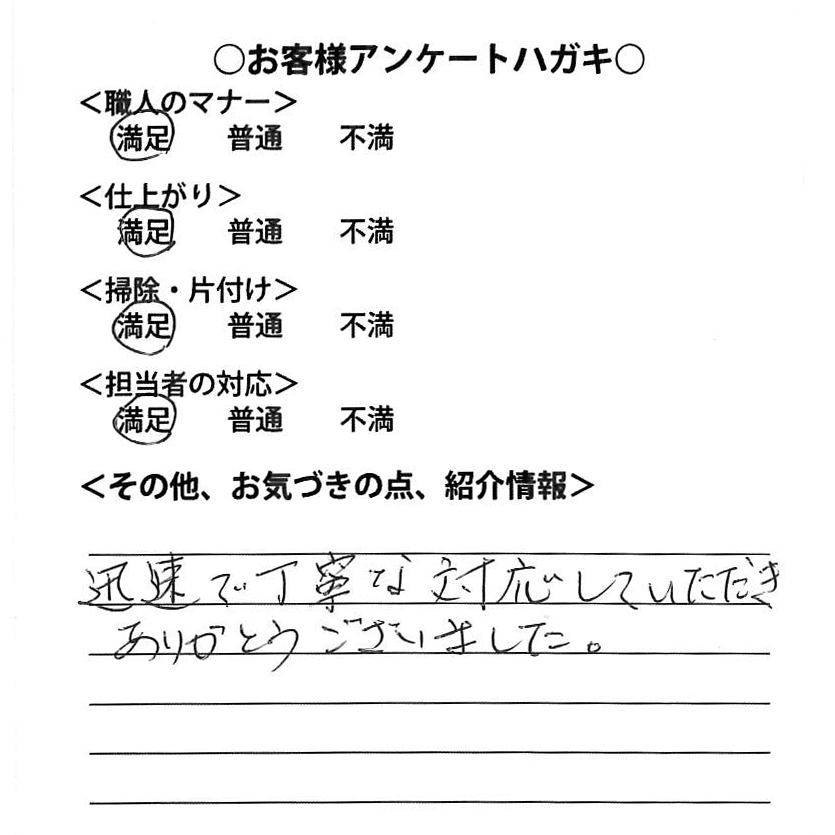 ○お客様アンケートハガキ○
＜職人のマナー＞
満足　普通　不満
＜仕上がり＞
満足　普通　不満
＜掃除・片付け＞
満足　普通　不満
＜担当者の対応＞
満足　普通　不満
＜その他、お気づきの点、紹介情報＞
迅速で丁寧な対応していただき
ありがとうございました。